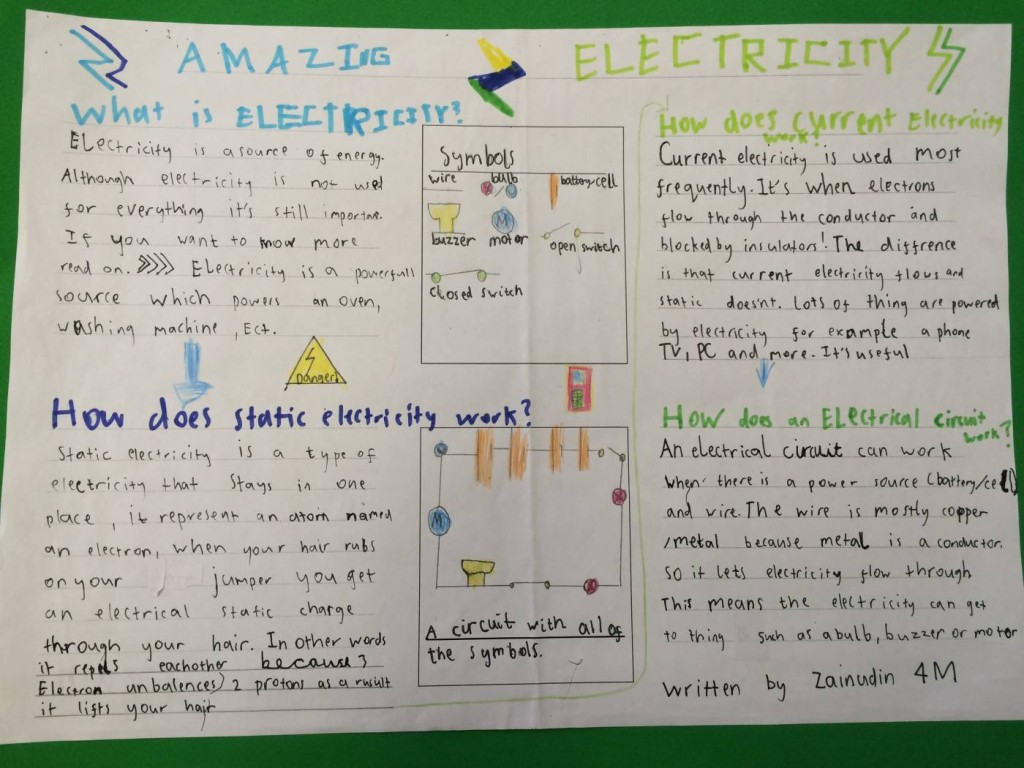 AMAZING ELECTRICITY
What is ELECTRICITY?
ELectricity is a source of energy.
Although electricity is not used
for everything it's still important.
If you want to know more
read on. ELectricity is a powerfull
source which powers an oven,
washing machine, Ect.
Danger!
How does static electricity work?
Static electricity is a type of
electricity that stays in one
place, it represent an atom named
an electron, when your hair rubs
on your jumper you get
an electrical static charge
through your hair. In other words
it repels eachother because 3
Electron unbalences) 2 protons as a result
it lifts your hair
Symbols
wire bulb battery/cell
M
buzzer motor open switch
closed switch
M
A circuit with all of
the symbols.
How does current Electricity
work?
Current electricity is used most
frequently. It's when electrons
flow through the conductor and
blocked by insulators! The diffrence
is that current electricity flows and
static doesn't. Lots of thing are powered
by electricity for example a phone
TV, PC and more. It's useful
How does an ELectrical circuit
work?
An electrical circuit can work
when there is a power source (battery/cell)
and wire. The wire is mostly copper
/metal because metal is a conductor.
So it lets electricity flow through.
This means the electricity can get
to thing such as a bulb, buzzer or motor
written by Zainudin 4M